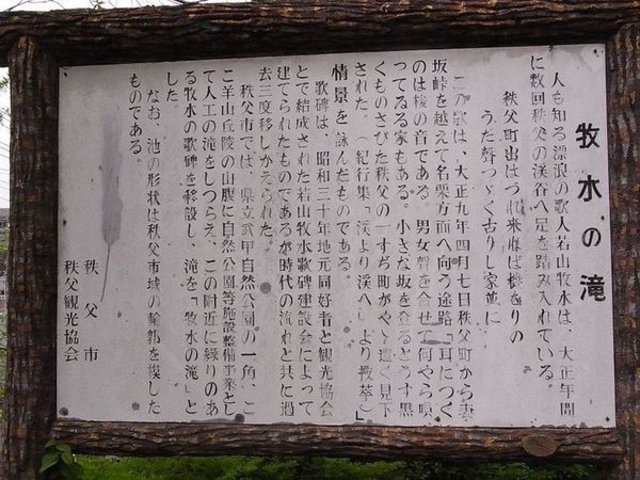 牧水の滝
人も知る漂浪の歌人若山牧水は、大正年間
に数回秩父の渓谷へ足を踏み入れている。
秩父町出はづれ来れば機をりの
うた聲つゞく古りし家並に
この歌は、大正九年四月七日秩父町から妻
坂峠を越えて名栗方面へ向う途路「耳につく
のは梭の音である。男女聲を合せて何やら唄
つてゐる家もある。小さな坂を登るとうす黒
くものさびた秩父の一すぢ町がやゝ遠く見下
された。（紀行集「渓より渓へ」より抜萃）」
情景を詠んだものである。
歌碑は、昭和三十年地元同好者と観光協会
とで結成された若山牧水歌碑建設会によって
建てられたものであるが時代の流れと共に過
去三度移しかえられた。
秩父市では、県立武甲自然公園の一角、こ
こ羊山丘陵の山腹に自然公園等施設整備事業とし
て人工の滝をしつらえ、この附近に縁りのあ
る牧水の歌碑を移設し、滝を「牧水の滝」と
した。
なお、池の形状は秩父市域の輪郭を模した
ものである。
秩父市
秩父観光協会